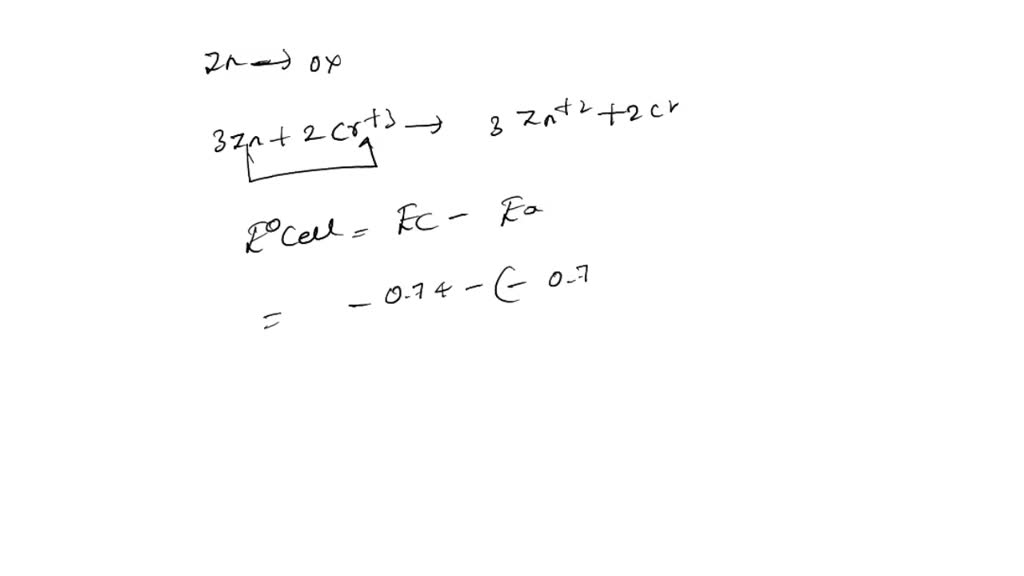 Zn → ox
3Zn + 2Cr+3 → 3 Zn+2 + 2Cr
E°Cell = EC - Ea
= - 0.74 - (- 0.7